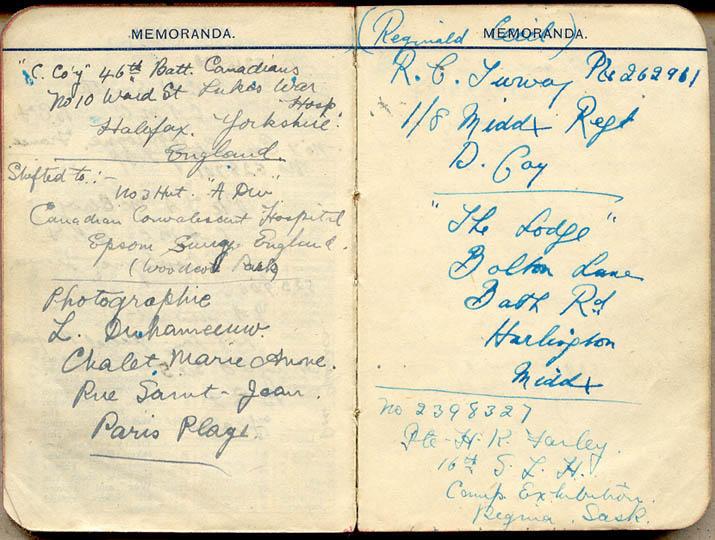 MEMORANDA.
"C. Co'y" 46th Batt. Canadians
No 10 Ward St Lukes War
Hosp.
Halifax. Yorkshire.
England.
Shifted to:-
No 3 Hut. "A Div"
Canadian Convalescent Hospital
Epsom Surrey England.
(Woodcote Park)
Photographie
L.
Chalet Marie Anne.
Rue Saint-Jean.
Paris Plage
MEMORANDA.
(Reginald Cecil)
R. C. Turvey Pte 262961
1/8 Middx Regt
D. Coy
"The Lodge"
Bolton Lane
Bath Rd
Harlington
Middx
No 2398327
Pte H. K. Farley.
16th S. L. H.
Camp Exhibition.
Regina. Sask.